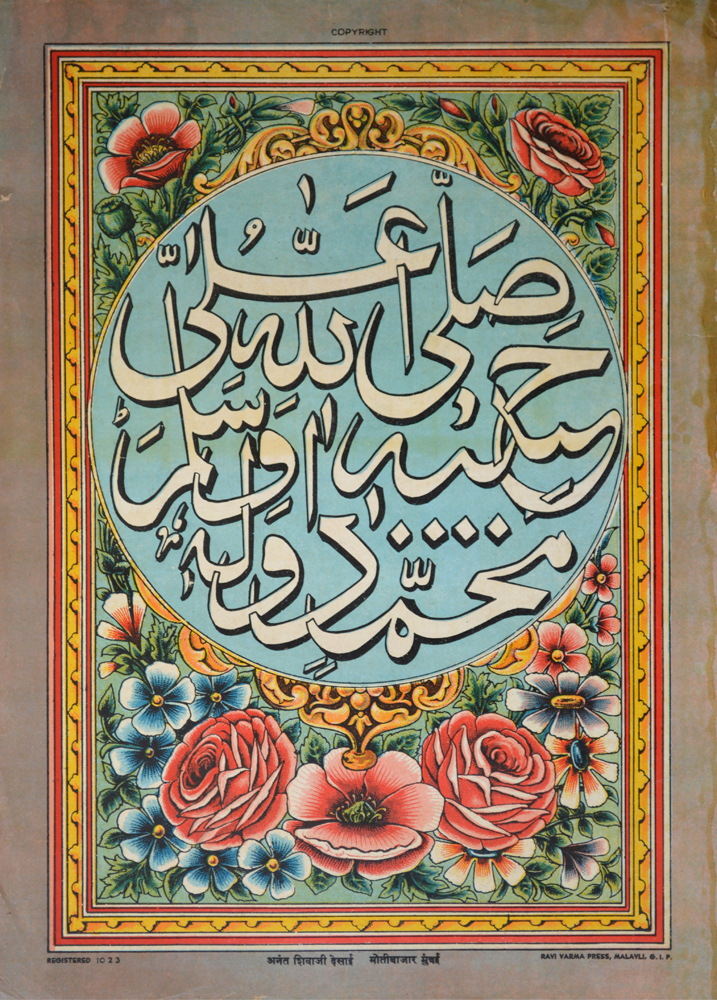 COPYRIGHT
صَلَّى الله عَلىٰ
حبيبه
محمّدٍ وآله وسَلّم
REGISTERED 1023
अनंत शिवाजी देसाई मोतीबाजार मुंबई
RAVI VARMA PRESS, MALAVLI, G. I. P.